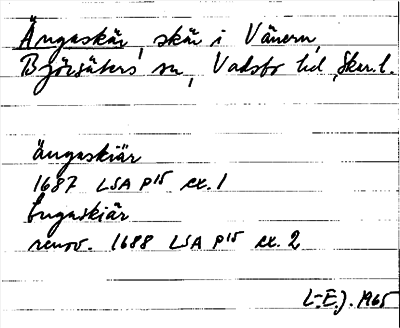 Ängaskär, skär i Vänern,
Björsäters sn, Vadsbo hd, Skar.l.
ängaskiär
1687 LSA P15 ex. 1
Engaskiär
renov. 1688 LSA P15 ex. 2
L-E.J. 1965